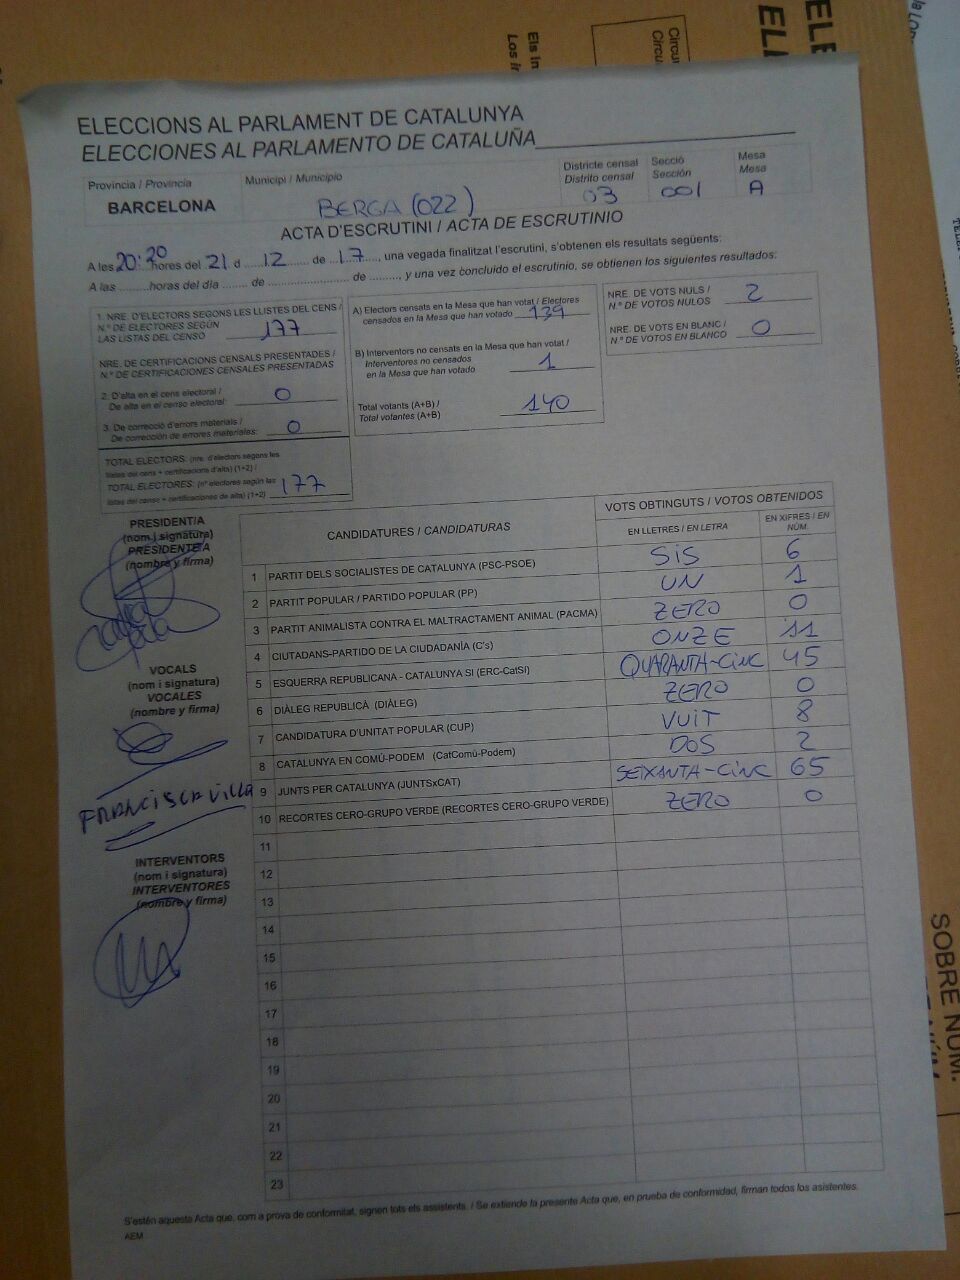 ELECCIONS AL PARLAMENT DE CATALUNYA
ELECCIONES AL PARLAMENTO DE CATALUÑA
Provincia / Provincia
BARCELONA
Municipi / Municipio
BERGA (022)
Districte censal
Distrito censal
03
Secció
Sección
001
Mesa
Mesa
A
ACTA D'ESCRUTINI / ACTA DE ESCRUTINIO
A les 20:20 hores del 21 d 12 de 17, una vegada finalitzat l'escrutini, s'obtenen els resultats següents:
A las .........horas del día ........ de ........................ de .........., y una vez concluido el escrutinio, se obtienen los siguientes resultados:
1. NRE. D'ELECTORS SEGONS LES LLISTES DEL CENS /
N.º DE ELECTORES SEGÚN
LAS LISTAS DEL CENSO 177
NRE. DE CERTIFICACIONS CENSALS PRESENTADES /
N.º DE CERTIFICACIONES CENSALES PRESENTADAS
2. D'alta en el cens electoral /
De alta en el censo electoral: 0
3. De correcció d'errors materials /
De corrección de errores materiales: 0
TOTAL ELECTORS: (nre. d'electors segons les
llistes del cens + certificacions d'alta) (1+2) /
TOTAL ELECTORES: (nº electores según las
listas del censo + certificaciones de alta) (1+2) 177
A) Electors censats en la Mesa que han votat / Electores
censados en la Mesa que han votado 139
B) Interventors no censats en la Mesa que han votat /
Interventores no censados
en la Mesa que han votado 1
Total votants (A+B) /
Total votantes (A+B) 140
NRE. DE VOTS NULS /
N.º DE VOTOS NULOS 2
NRE. DE VOTS EN BLANC /
N.º DE VOTOS EN BLANCO 0
PRESIDENT/A
(nom i signatura)
PRESIDENTE/A
(nombre y firma)
VOCALS
(nom i signatura)
VOCALES
(nombre y firma)
FRANCISCA VILLA
INTERVENTORS
(nom i signatura)
INTERVENTORES
(nombre y firma)
CANDIDATURES / CANDIDATURAS
VOTS OBTINGUTS / VOTOS OBTENIDOS
EN LLETRES / EN LETRA
EN XIFRES / EN NÚM.
1 PARTIT DELS SOCIALISTES DE CATALUNYA (PSC-PSOE) SIS 6
2 PARTIT POPULAR / PARTIDO POPULAR (PP) UN 1
3 PARTIT ANIMALISTA CONTRA EL MALTRACTAMENT ANIMAL (PACMA) ZERO 0
4 CIUTADANS-PARTIDO DE LA CIUDADANÍA (C's) ONZE 11
5 ESQUERRA REPUBLICANA - CATALUNYA SI (ERC-CatSí) QUARANTA-CINC 45
6 DIÀLEG REPUBLICÀ (DIÀLEG) ZERO 0
7 CANDIDATURA D'UNITAT POPULAR (CUP) VUIT 8
8 CATALUNYA EN COMÚ-PODEM (CatComú-Podem) DOS 2
9 JUNTS PER CATALUNYA (JUNTSxCAT) SEIXANTA-CINC 65
10 RECORTES CERO-GRUPO VERDE (RECORTES CERO-GRUPO VERDE) ZERO 0
11
12
13
14
15
16
17
18
19
20
21
22
23
S'estén aquesta Acta que, com a prova de conformitat, signen tots els assistents. / Se extiende la presente Acta que, en prueba de conformidad, firman todos los asistentes.
AEM
Els in
Los in
Circu
Circu
ELE
ELE
SOBRE NÚM.